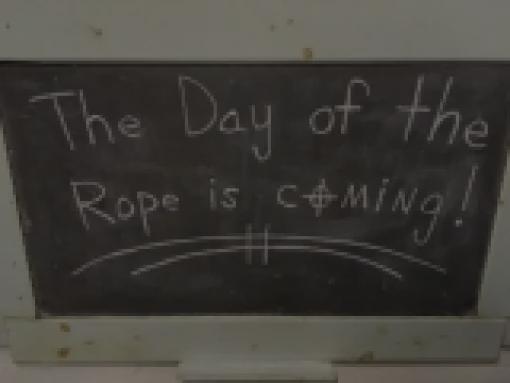 The Day of the
Rope is coming!